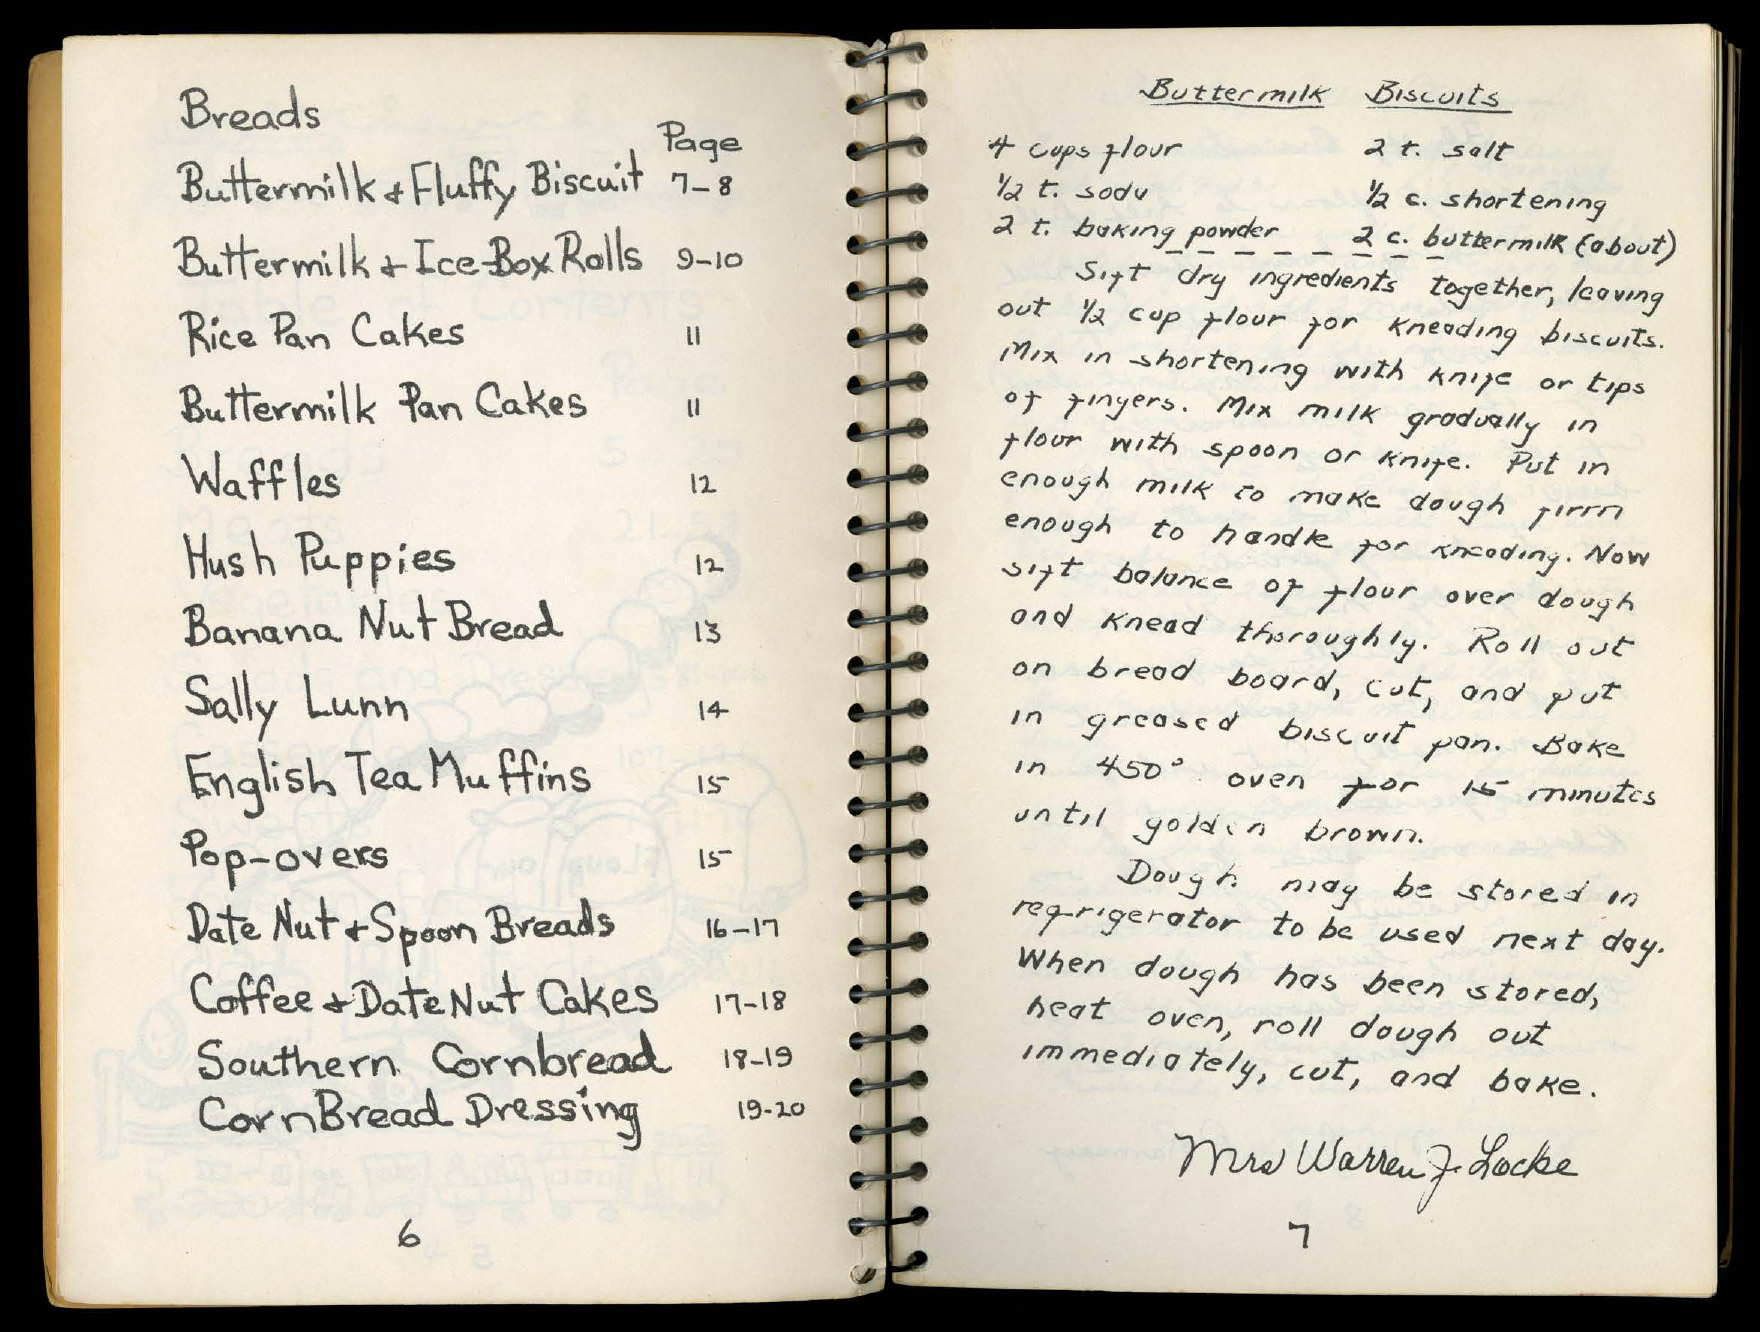 Breads
Page
Buttermilk & Fluffy Biscuit 7-8
Buttermilk & Ice-Box Rolls 9-10
Rice Pan Cakes 11
Buttermilk Pan Cakes 11
Waffles 12
Hush Puppies 12
Banana Nut Bread 13
Sally Lunn 14
English Tea Muffins 15
Pop-overs 15
Date Nut & Spoon Breads 16-17
Coffee & Date Nut Cakes 17-18
Southern Cornbread 18-19
CornBread Dressing 19-20
6
Buttermilk Biscuits
4 cups flour 2 t. salt
1/2 t. soda 1/2 c. shortening
2 t. baking powder 2 c. buttermilk (about)
Sift dry ingredients together, leaving
out 1/2 cup flour for kneading biscuits.
Mix in shortening with knife or tips
of fingers. Mix milk gradually in
flour with spoon or knife. Put in
enough milk to make dough firm
enough to handle for kneading. Now
sift balance of flour over dough
and knead thoroughly. Roll out
on bread board, cut, and put
in greased biscuit pan. Bake
in 450° oven for 15 minutes
until golden brown.
Dough may be stored in
refrigerator to be used next day.
When dough has been stored,
heat oven, roll dough out
immediately, cut, and bake.
Mrs Warren J. Locke
7